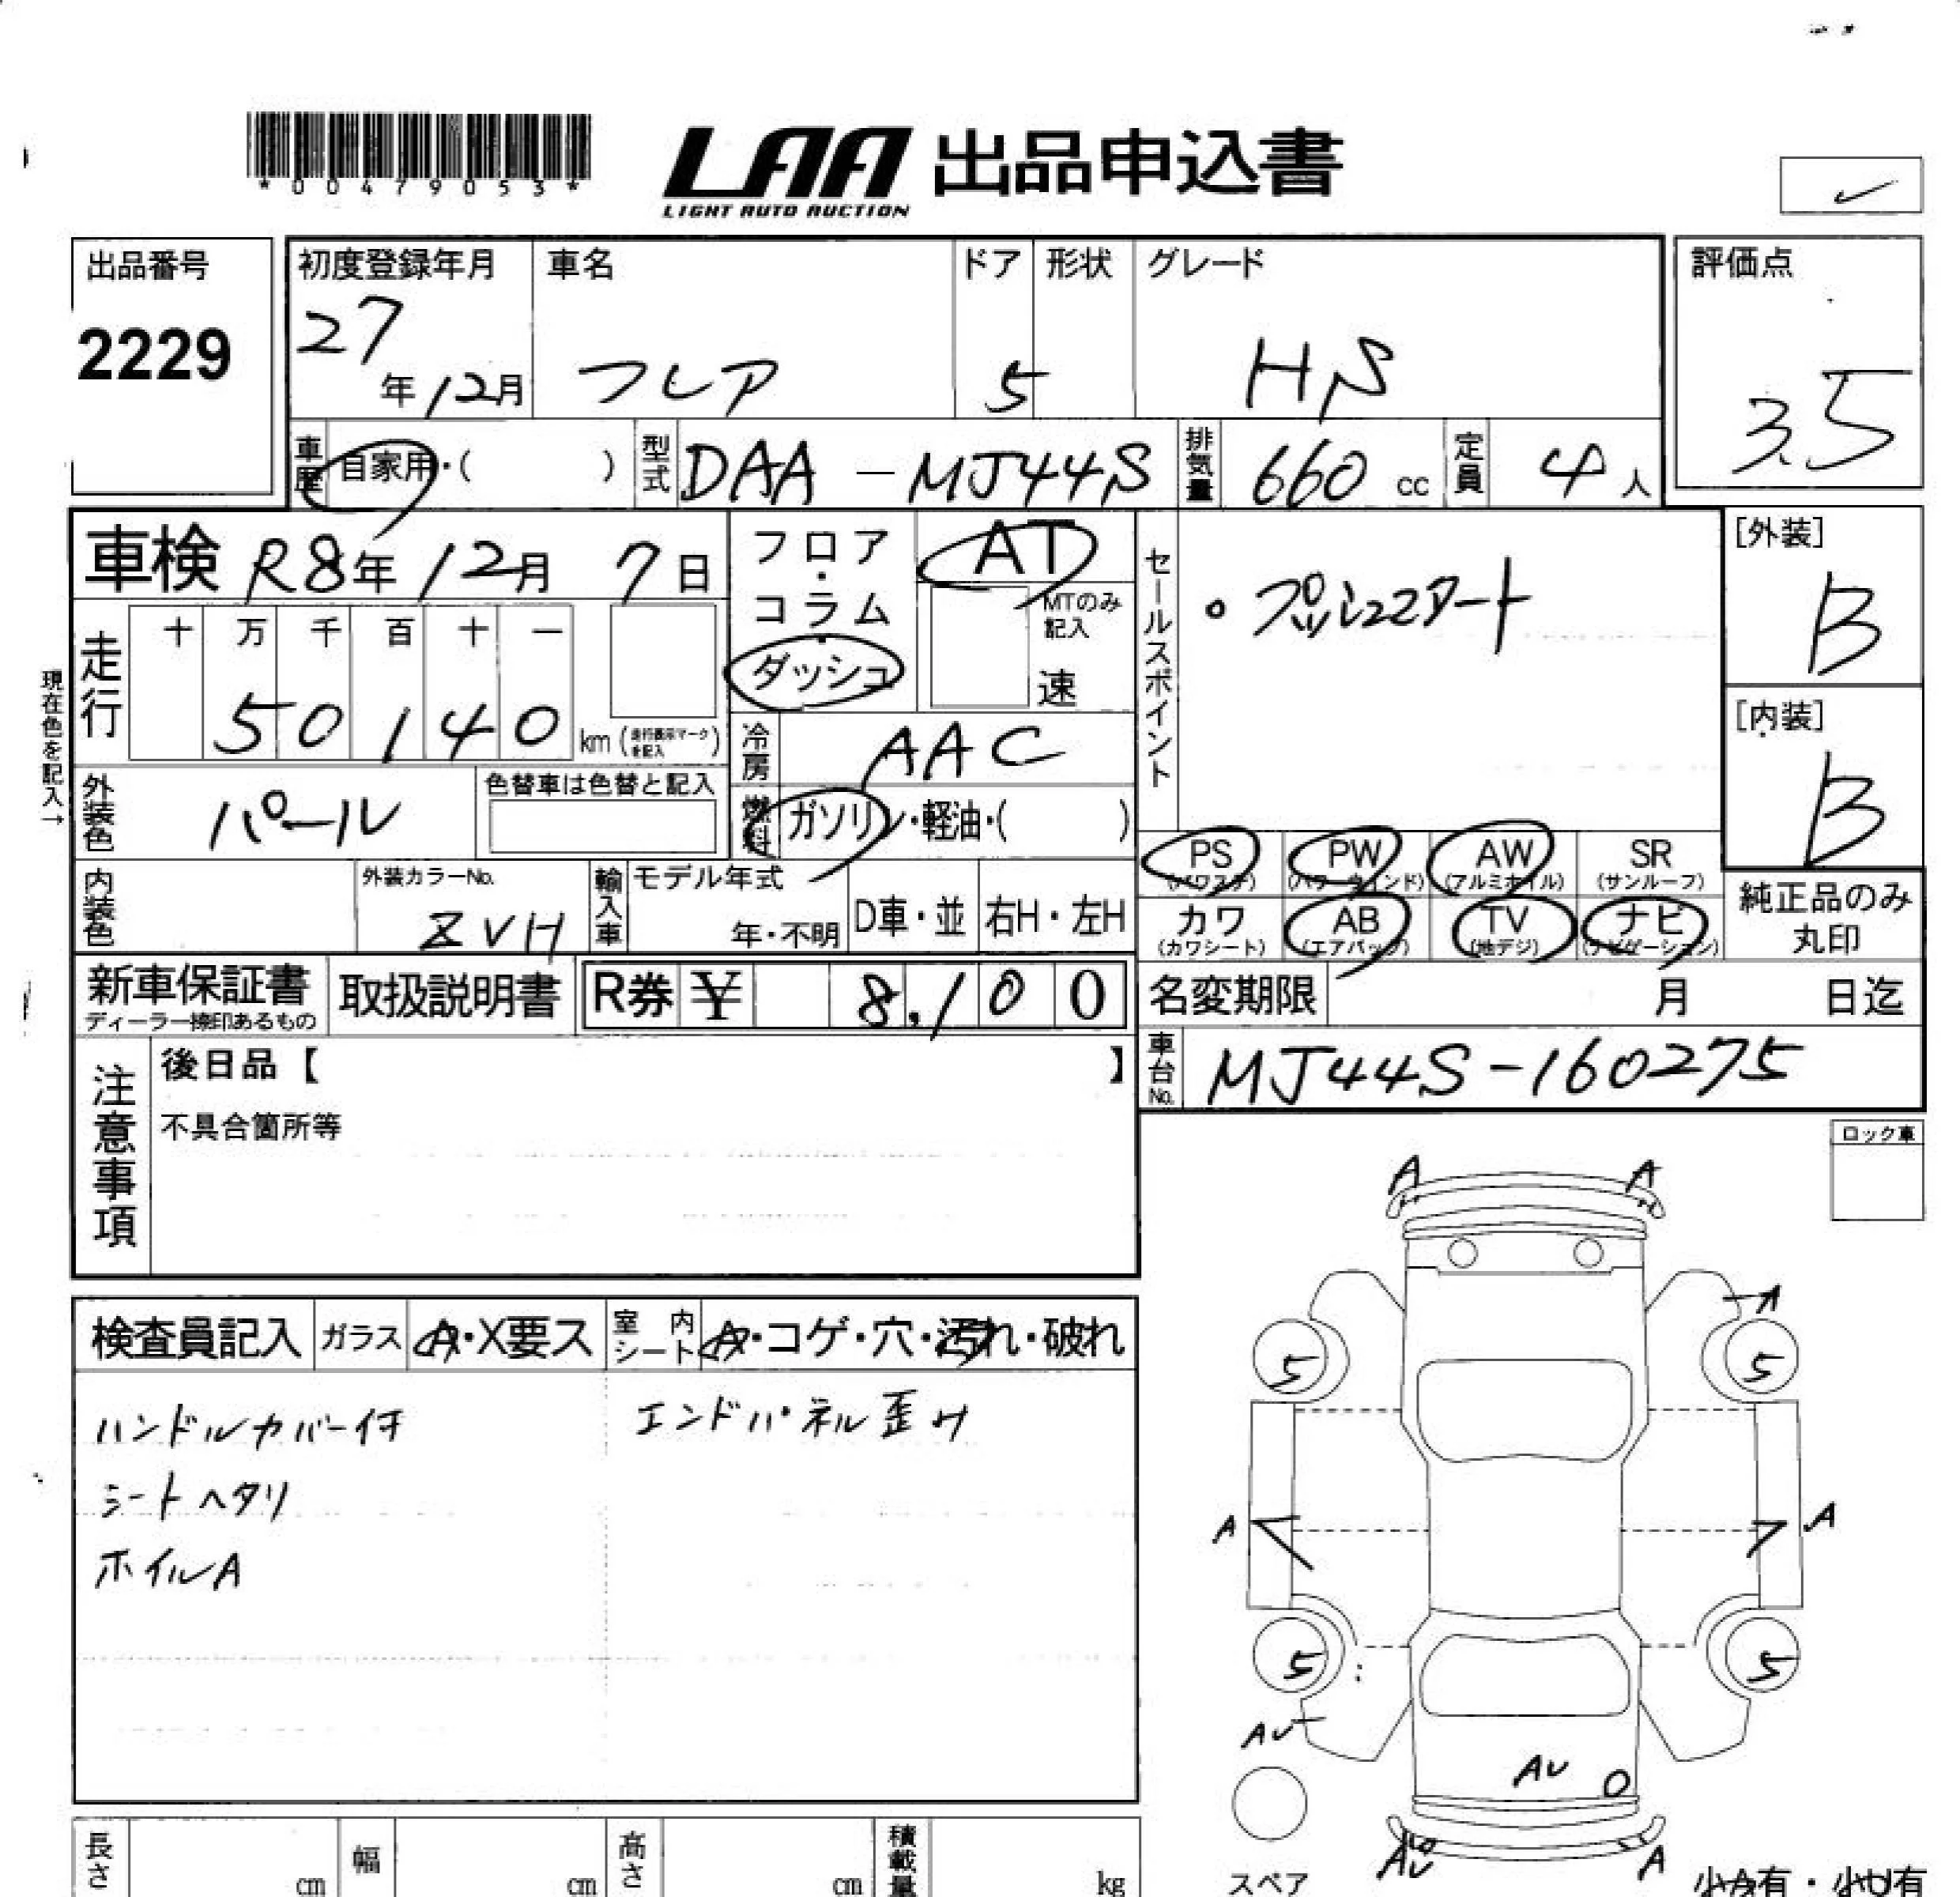 *00479053*
LAA 出品申込書
LIGHT AUTO AUCTION
出品番号
2229
初度登録年月
27年12月
車名
フレア
ドア
5
形状
グレード
HS
評価点
3.5
車歴
自家用・( )
型式
DAA-MJ44S
排気量
660 cc
定員
4人
車検 R8年12月7日
フロア・コラム・ダッシュ
AT
MTのみ記入
速
セールスポイント
・プッシュスタート
[外装]
B
[内装]
B
現在色を記入→
走行
十 万 千 百 十 一
50140 km (走行表示マークを記入)
冷房
AAC
外装色
パール
色替車は色替と記入
燃料
ガソリン・軽油・( )
PS (パワステ)
PW (パワーウィンド)
AW (アルミホイル)
SR (サンルーフ)
内装色
外装カラーNo.
ZVH
輸入車
モデル年式
年・不明
D車・並
右H・左H
カワ (カワシート)
AB (エアバッグ)
TV (地デジ)
ナビ (ナビゲーション)
純正品のみ丸印
新車保証書
ディーラー捺印あるもの
取扱説明書
R券 ¥ 8,100
名変期限 月 日迄
車台No.
MJ44S-160275
注意事項
後日品【 】
不具合箇所等
ロック車
検査員記入
ガラス
A・X要ス
室内シート
A・コゲ・穴・汚れ・破れ
ハンドルカバー付
エンドパネル歪み
シートヘタリ
ホイルA
A A
A
5 5
A A
5 5
AU
AU
AU A
スペア
長さ cm
幅 cm
高さ cm
積載量 kg
小A有・小U有